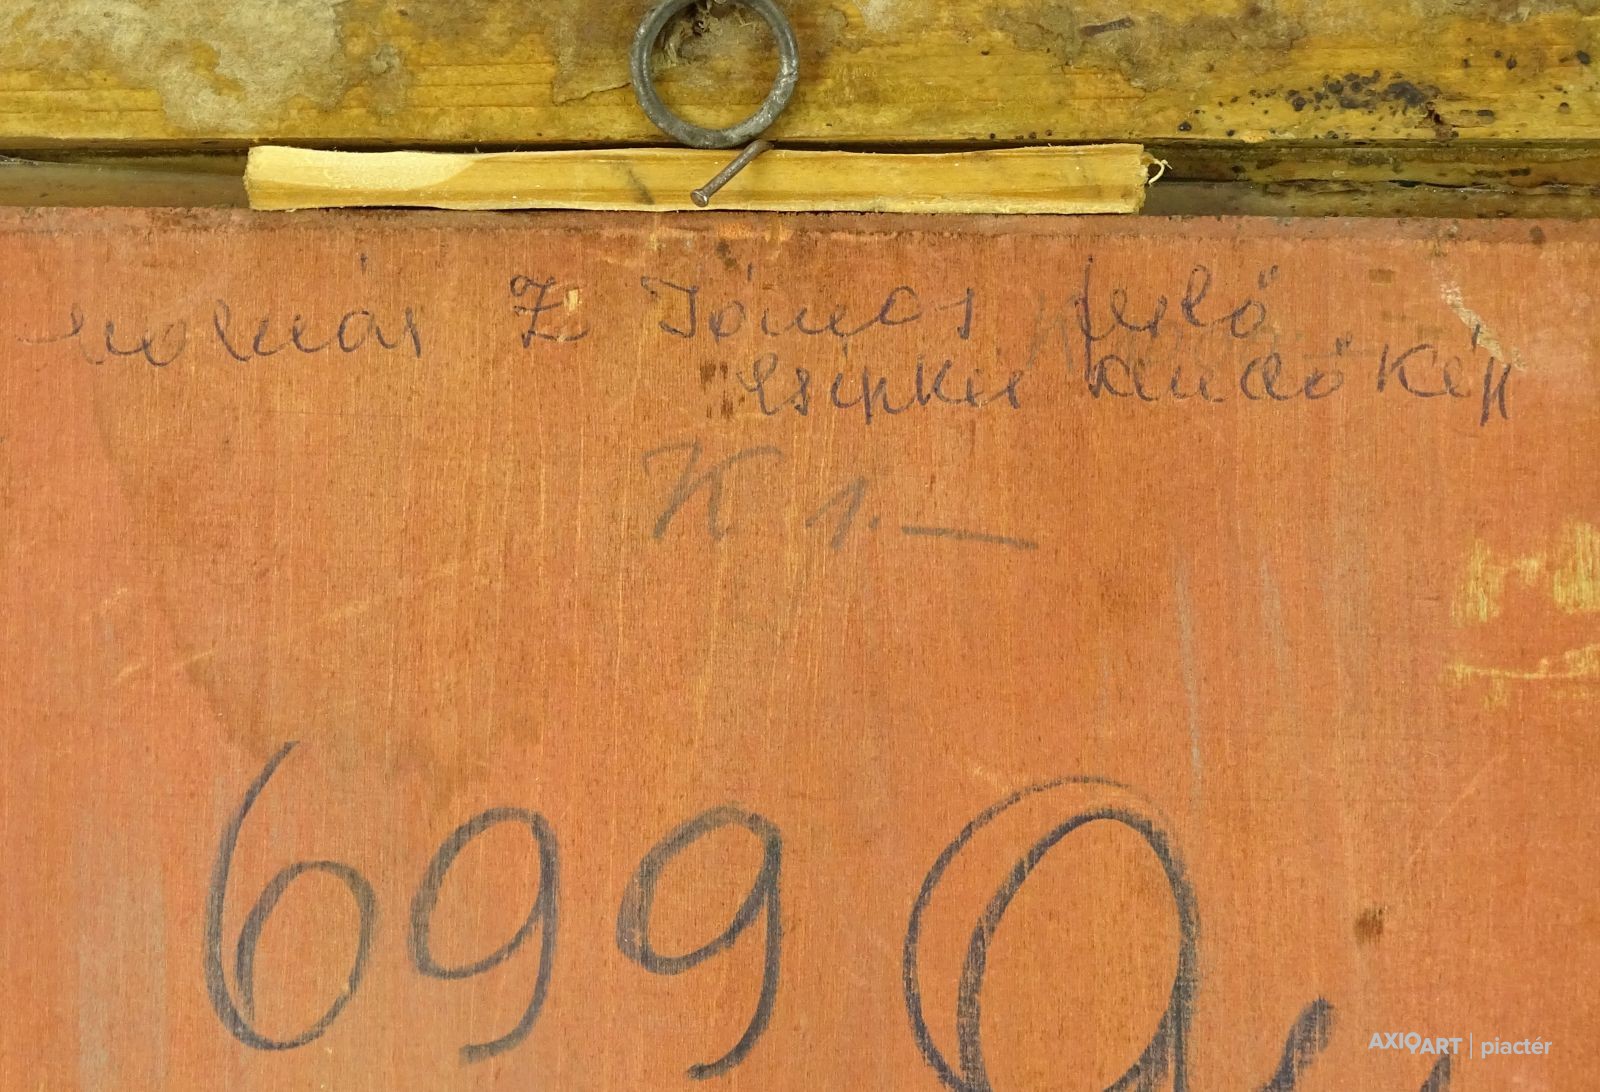 Molnár Z János festő
csipkés
kép
K 1.—
699
AXIOART | piactér